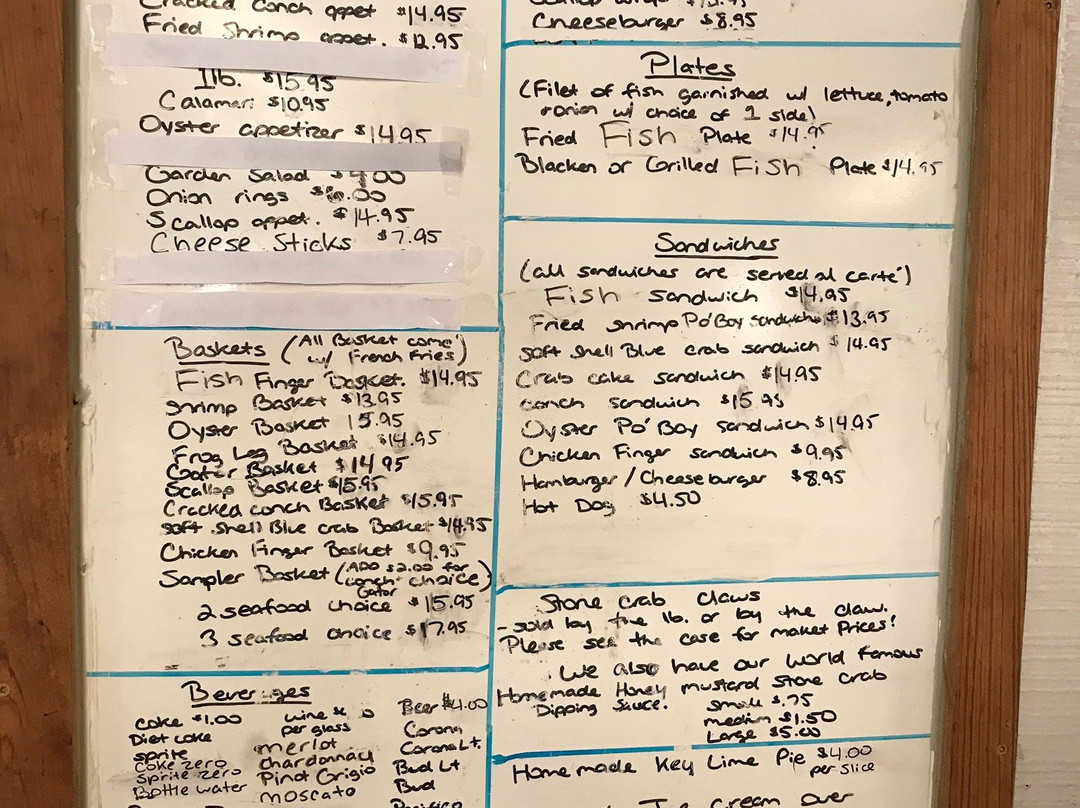 Cracked Conch appet $14.95
Fried Shrimp appet. $12.95
1lb. $15.95
Calamari $10.95
Oyster appetizer $14.95
Garden Salad $4.00
Onion rings
Scallop appet. $14.95
Cheese Sticks $7.95
Baskets (All Basket come w/ French Fries)
Fish Finger Basket. $14.95
Shrimp Basket $13.95
Oyster Basket 15.95
Frog Leg Basket $14.95
Gator Basket $14.95
Scallop Basket $15.95
Cracked conch Basket $15.95
Soft shell Blue crab Basket $14.95
Chicken Finger Basket $9.95
Sampler Basket (ADD $2.00 for conch Gator choice)
2 seafood choice $15.95
3 seafood choice $17.95
Beverages
Coke $1.00
Diet coke
Sprite
Coke Zero
Sprite zero
Bottle water
wine
per glass
merlot
chardonnay
Pinot Grigio
moscato
Beer $4.00
Corona
Corona Lt.
Bud Lt
Bud
Pacifico
Cheeseburger $8.95
Plates
(Filet of fish garnished w/ lettuce, tomato
onion w/ choice of 1 side)
Fried Fish Plate $14.95
Blacken or Grilled Fish Plate $14.95
Sandwiches
(all sandwiches are served al carté)
Fish sandwich $14.95
Fried shrimp Po'Boy sandwich $13.95
soft shell Blue crab sandwich $14.95
Crab cake sandwich $14.95
conch sandwich $15.95
Oyster Po' Boy sandwich $14.95
Chicken Finger sandwich $9.95
Hamburger/Cheeseburger $8.95
Hot Dog $4.50
Stone crab claws
- sold by the lb. or by the claw.
Please see the case for maket Prices!
We also have our world Famous
Homemade Honey mustard stone crab
Dipping Sauce. small $.75
medium $1.50
Large $5.00
Homemade Key Lime Pie $4.00
per slice
Ice cream over